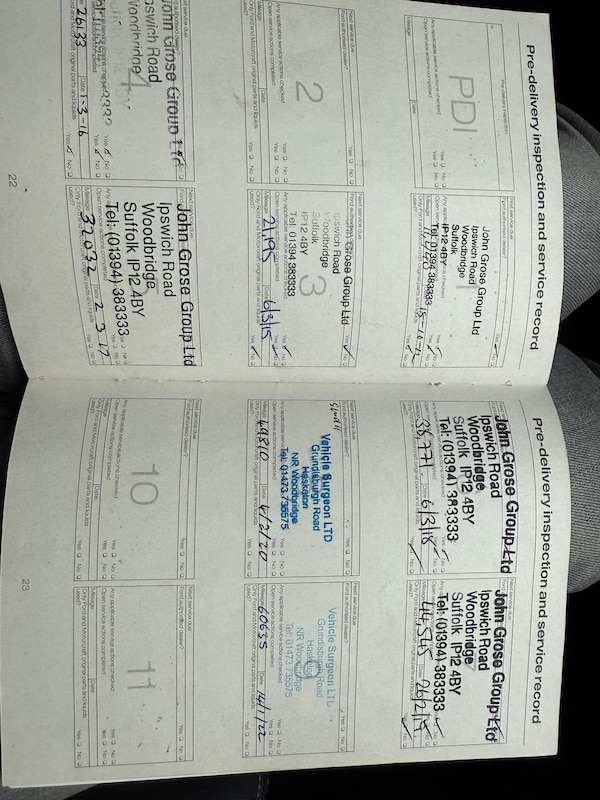 Pre-delivery inspection and service record
PDI
Pre-delivery inspection
Any applicable service actions checked
Open service actions completed
Mileage
Date
Next service due
John Grose Group Ltd
Ipswich Road
Woodbridge
Suffolk
IP12 4BY
Tel: 01394 383333
Next service due
Ford authorised dealer? Yes No
2
Any applicable service actions checked Yes No
Open service actions completed Yes No
Mileage Date
Only Ford and Motorcraft original parts and liquids used? Yes No
John Grose Group Ltd
Ipswich Road
Woodbridge
Suffolk
IP12 4BY
Tel: 01394 383333
3
Mileage 21,195 Date 6/3/15
Next service due
John Grose Group Ltd
Ipswich Road
Woodbridge
4
26133 Date 1-3-16
Next service due
John Grose Group Ltd
Ipswich Road
Woodbridge
Suffolk IP12 4BY
Tel: (01394) 383333
Mileage 32032 Date 2 3 17
22
Pre-delivery inspection and service record
John Grose Group Ltd
Ipswich Road
Woodbridge
Suffolk IP12 4BY
Tel: (01394) 383333
38,771 6/3/18
John Grose Group Ltd
Ipswich Road
Woodbridge
Suffolk IP12 4BY
Tel: (01394) 383333
44,545
Next service due
Ford authorised dealer?
Vehicle Surgeon LTD
Grundisburgh Road
Hasketon
NR Woodbridge
Tel: 01473 735575
Mileage 49810 Date 4/2/20
Next service due
Ford authorised dealer?
Vehicle Surgeon LTD
Grundisburgh Road
Hasketon
NR Woodbridge
Tel: 01473 735575
Mileage 60635 Date 14/1/22
Next service due
Ford authorised dealer? Yes No
10
Any applicable service actions checked Yes No
Open service actions completed Yes No
Mileage Date
Only Ford and Motorcraft original parts and liquids used? Yes No
Next service due
Ford authorised dealer? Yes No
11
Any applicable service actions checked Yes No
Open service actions completed Yes No
Mileage Date
Only Ford and Motorcraft original parts and liquids used? Yes No
23